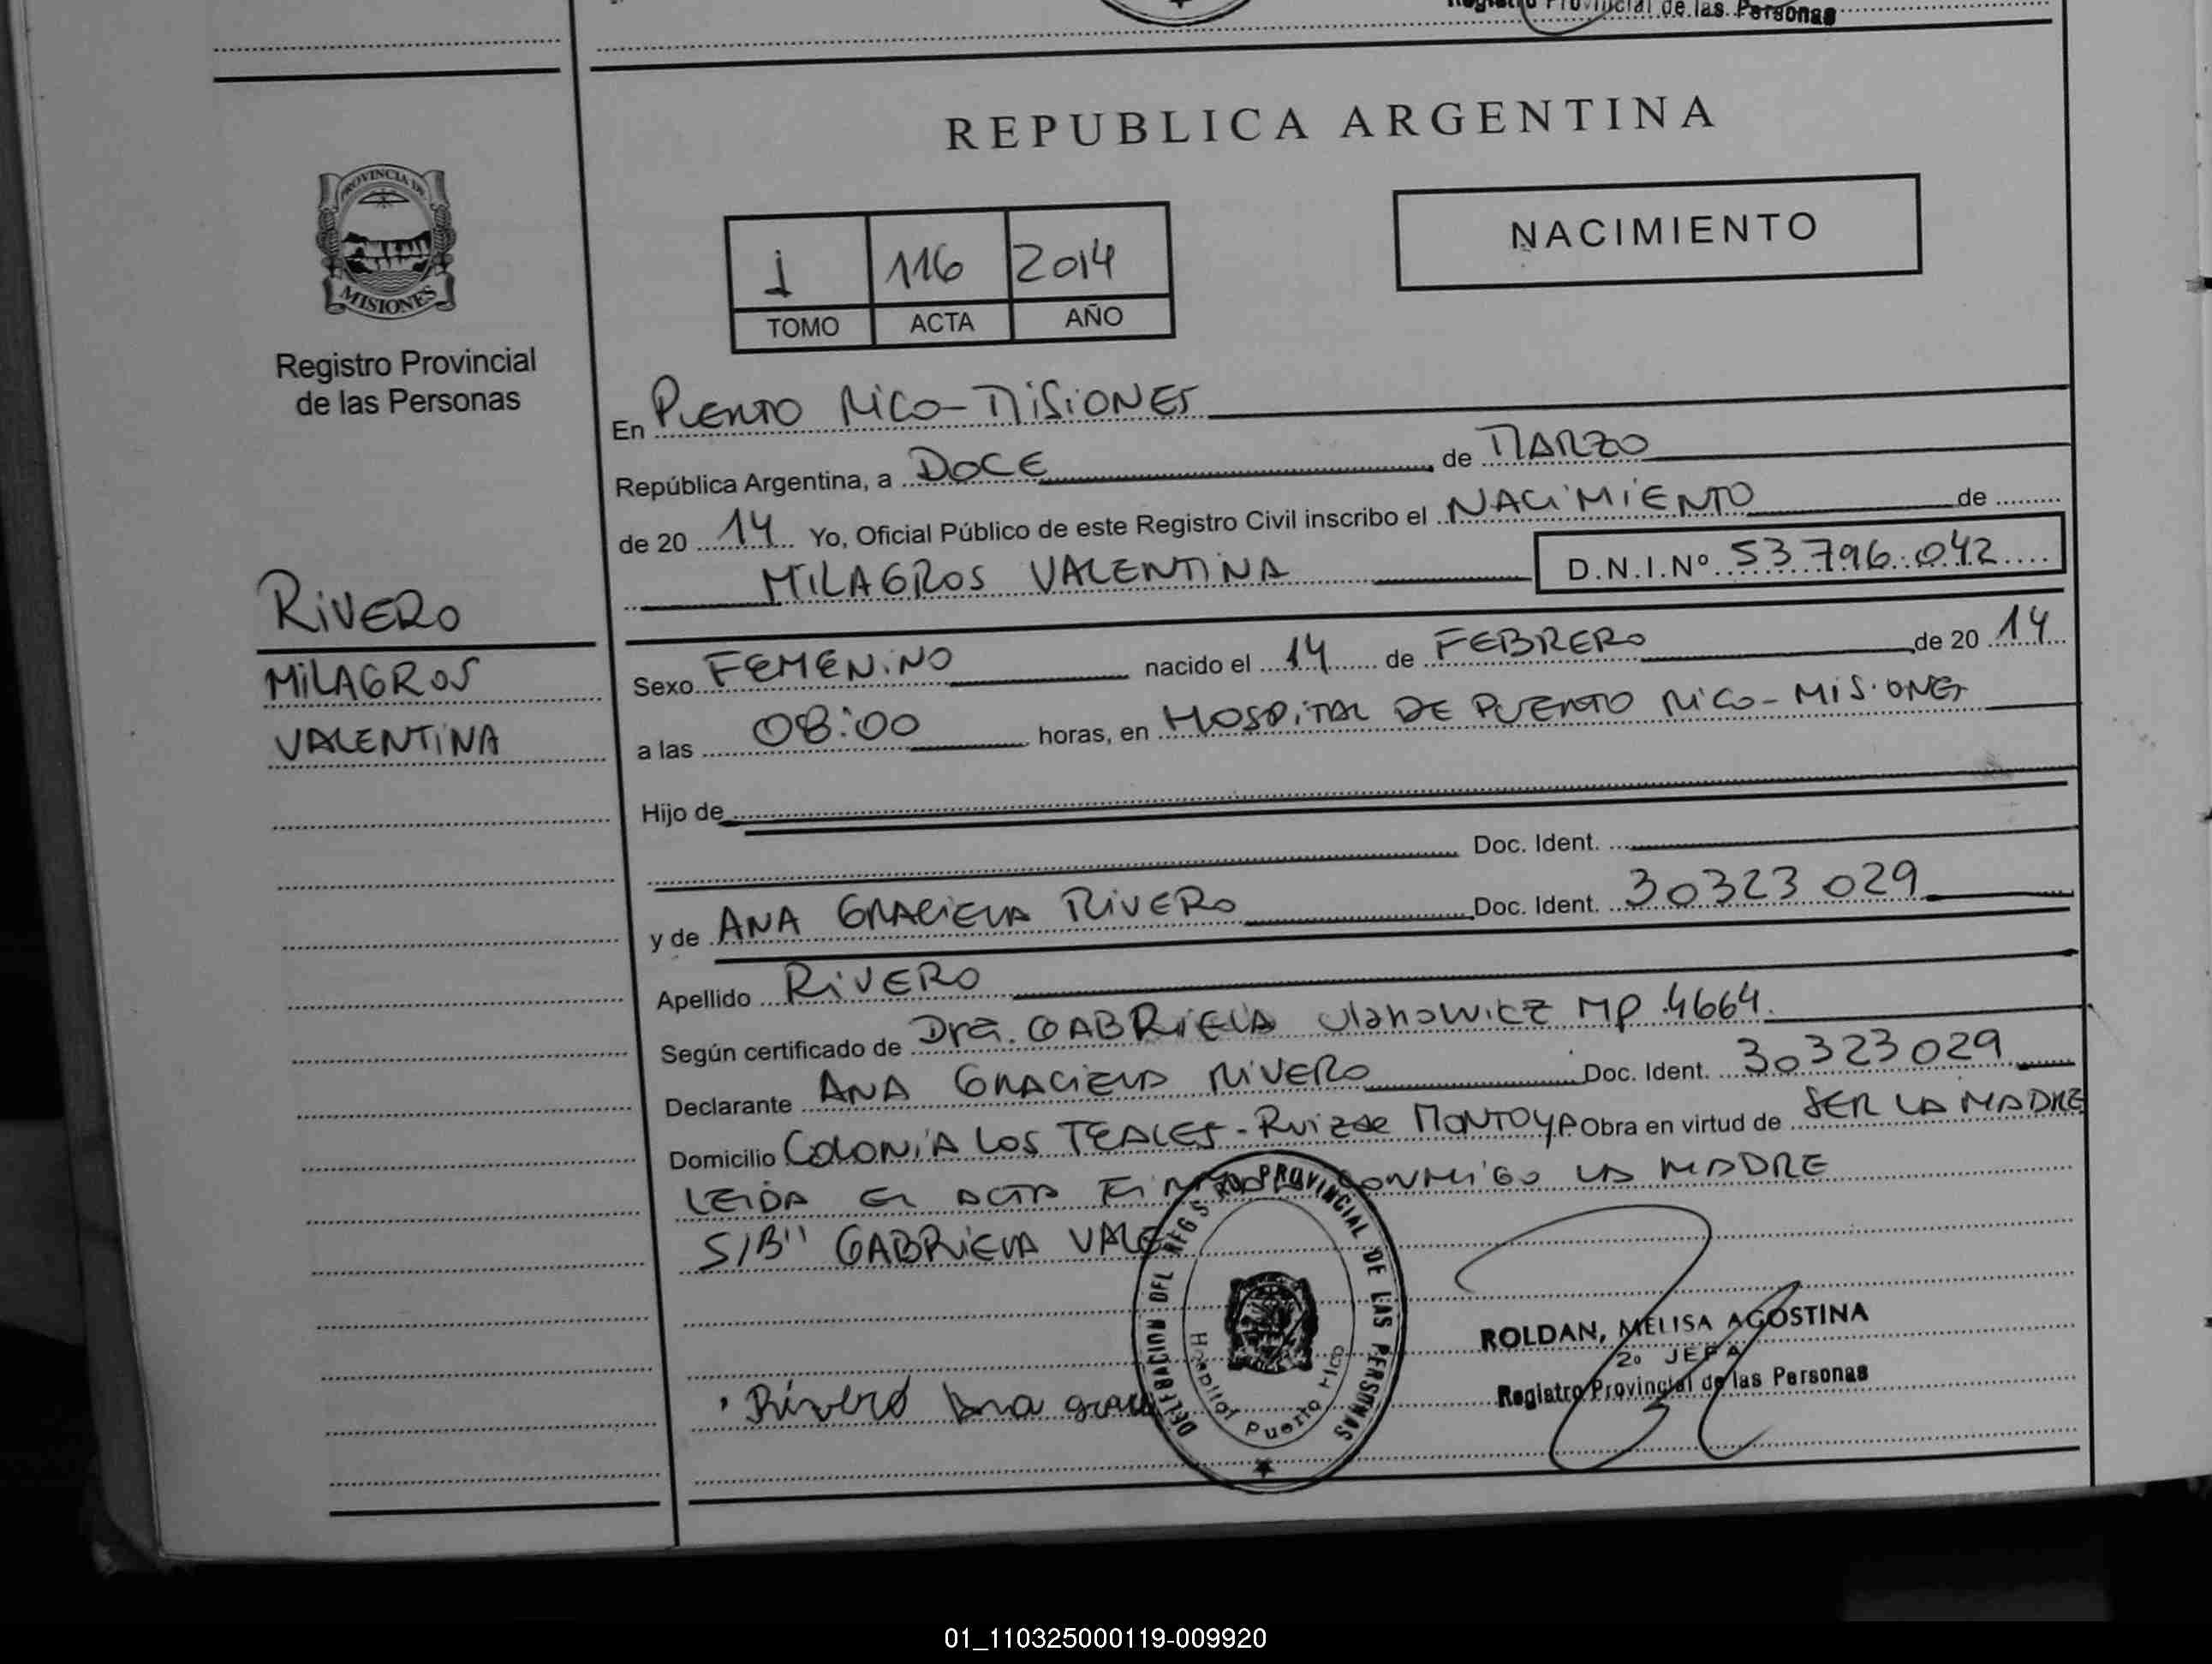 Registro Provincial de las Personas
REPUBLICA ARGENTINA
PROVINCIA DE
MISIONES
Registro Provincial
de las Personas
1 116 2014
TOMO ACTA AÑO
NACIMIENTO
En PUERTO RICO - MISIONES
República Argentina, a DOCE de MARZO
de 20 14 Yo, Oficial Público de este Registro Civil inscribo el NACIMIENTO de
MILAGROS VALENTINA D.N.I.Nº 53.796.042
RIVERO
MILAGROS
VALENTINA
Sexo FEMENINO nacido el 14 de FEBRERO de 20 14
a las 08:00 horas, en HOSPITAL DE PUERTO RICO - MISIONES
Hijo de
Doc. Ident.
y de ANA GRACIELA RIVERO Doc. Ident. 30323029
Apellido RIVERO
Según certificado de Dra. GABRIELA Ulanowicz MP 4664.
Declarante ANA GRACIELA RIVERO Doc. Ident. 30323029
Domicilio COLONIA LOS TEALES - Ruiz de MONTOYA Obra en virtud de SER LA MADRE
LEIDA EL ACTA CONMIGO LA MADRE
S/B" GABRIELA
DELEGACION DEL REGISTRO PROVINCIAL DE LAS PERSONAS
Hospital Puerto Rico
ROLDAN, MELISA AGOSTINA
2º JEFA
Registro Provincial de las Personas
Rivero Ana
01_110325000119-009920